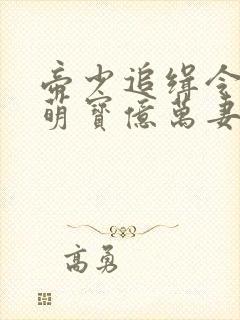 帝少追缉令
萌寶億萬妻
高勇